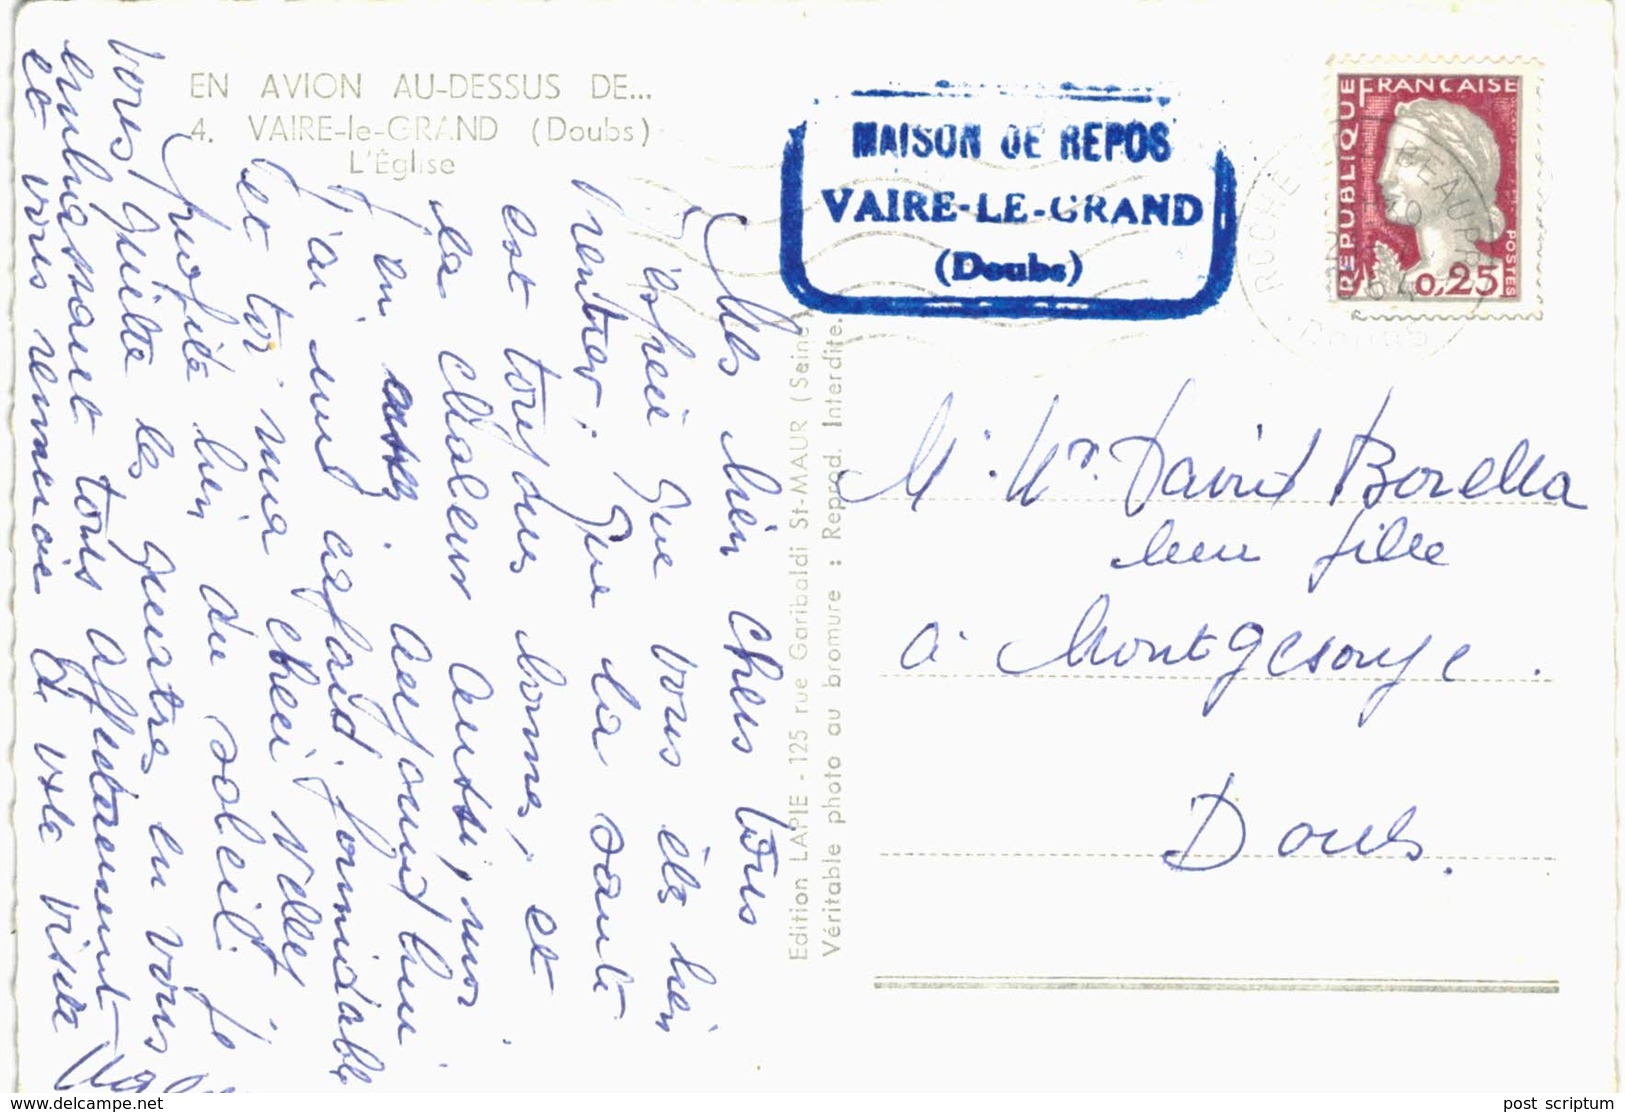 EN AVION AU-DESSUS DE...
4. VAIRE-le-GRAND (Doubs)
L'Église
MAISON DE REPOS
VAIRE-LE-GRAND
(Doubs)
REPUBLIQUE FRANCAISE
POSTES
0,25
ROCHE BEAUPRE
DOUBS
Mes bien chers tous
J'espère que vous êts bien
rentrer; que la santé
est toujours bonne, et
la chaleur aussi, moi
j'en ai aujourd'hui
j'ai eu formidable
et toi ma chèri
profite bien du soleil. Je
vous quitte les quatres en vous
embrassant tous affectueusement
et vous remercie de vtre visite
Edition LAPIE - 125 rue Garibaldi St-MAUR (Seine)
Véritable photo au bromure : Reprod. Interdite.
M. Mr. David Borella
leur fille
à Montgesoye.
Doubs.
www.delcampe.net
post scriptum